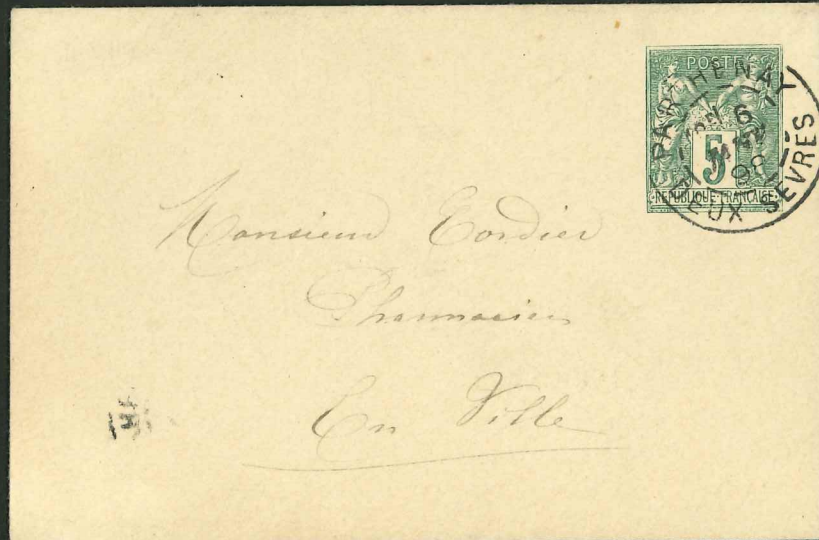 POSTES
5
REPUBLIQUE FRANÇAISE
PARTHENAY
6
98
DEUX SEVRES
Monsieur Cordier
Pharmacien
En Ville